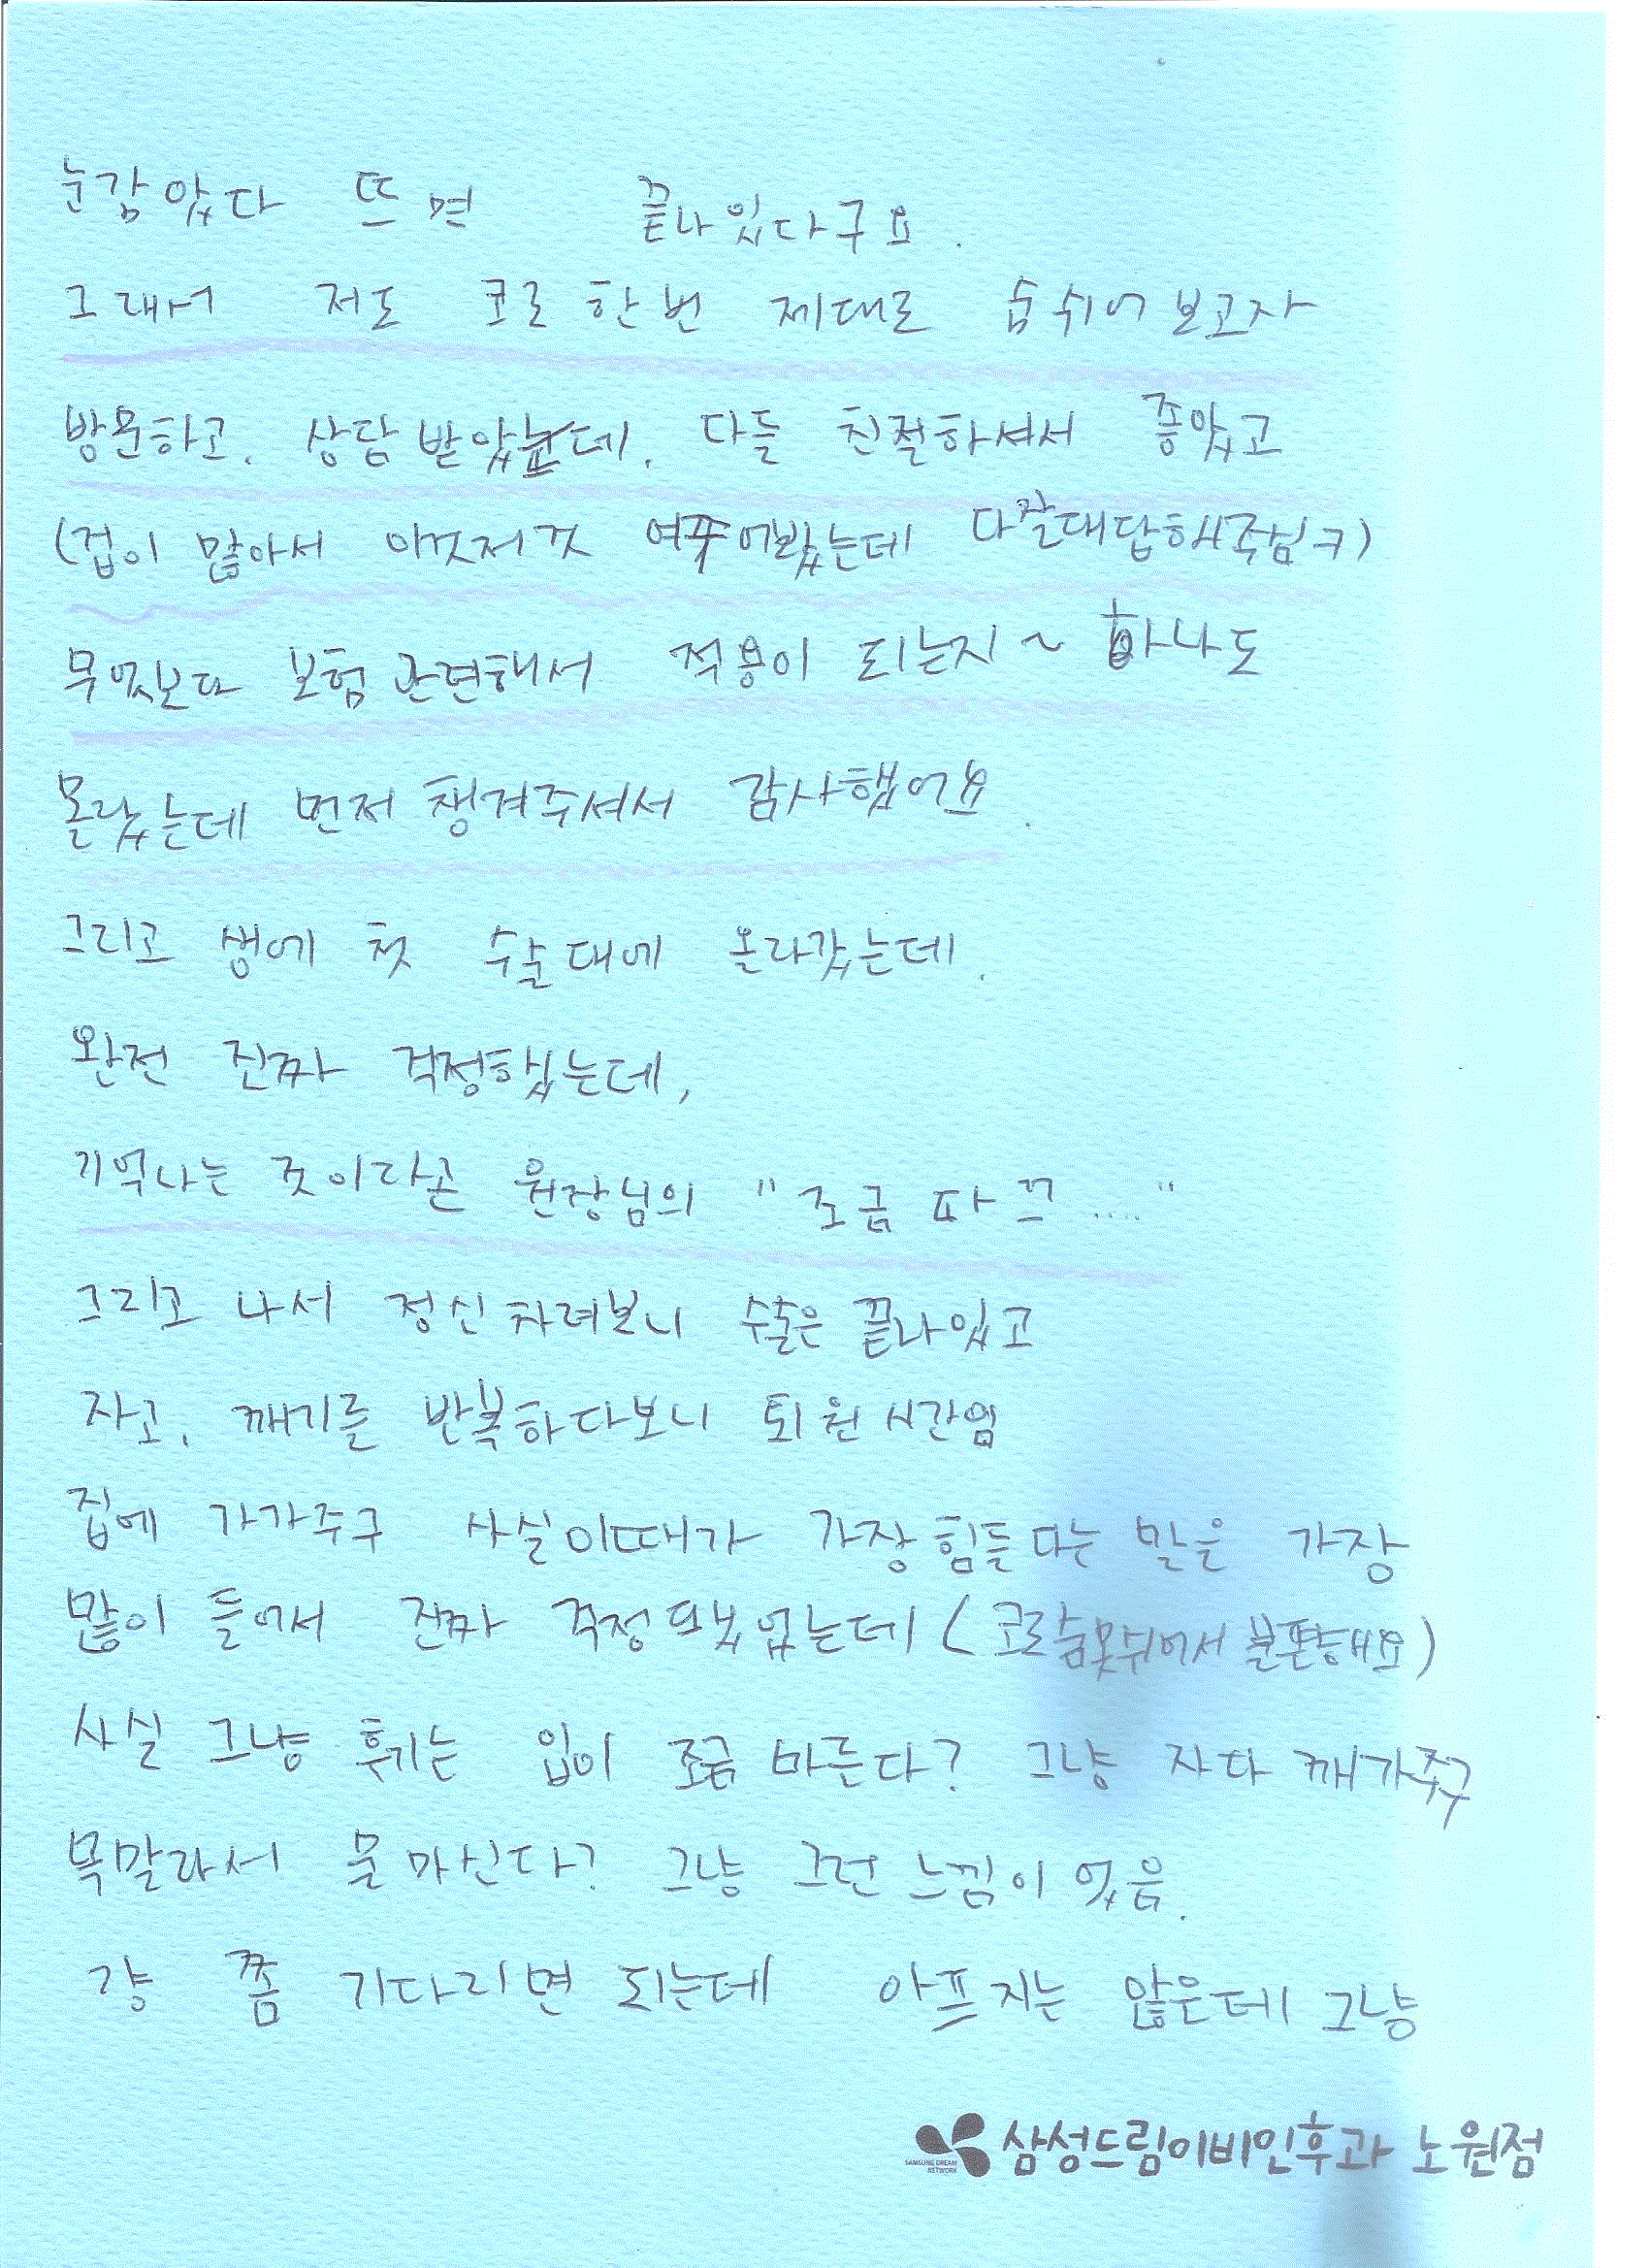 눈감았다 뜨면 끝나있다구요.
그래서 저도 코로 한번 제대로 숨쉬어보고자
방문하고, 상담받았는데, 다들 친절하셔서 좋았고
(겁이 많아서 이것저것 여쭈어봤는데 다잘대답해주심ㅋ)
무엇보다 보험관련해서 적용이 되는지~ 하나도
몰랐는데 먼저 챙겨주셔서 감사했어요.
그리고 생에 첫 수술대에 올라갔는데,
완전 진짜 걱정했는데,
기억나는 것이라곤 원장님의 "조금 따끄...."
그리고 나서 정신차려보니 수술은 끝나있고
자고, 깨기를 반복하다보니 퇴원시간임
집에 가가주구 사실이때가 가장힘들다는 말을 가장
많이 들어서 진짜 걱정되었었는데 (코로숨못쉬어서 불편해요)
사실 그냥 휴기는 입이 조금 마른다? 그냥 자다 깨가주구
목말라서 물마신다? 그냥 그런느낌이 었음.
걍 쫌 기다리면 되는데 아프지는 않은데 그냥
SAMSUNG DREAM NETWORK 삼성드림이비인후과 노원점